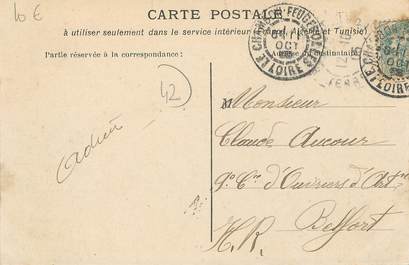 10 €
CARTE POSTALE
à utiliser seulement dans le service intérieur (France, Algérie et Tunisie)
Partie réservée à la correspondance:
LE CHAMBON-FEUGEROLLES
OCT
LOIRE
42
Monsieur
Claude Aucour
9e Cie d'Ouvriers d'Artrie
Belfort
H. R.